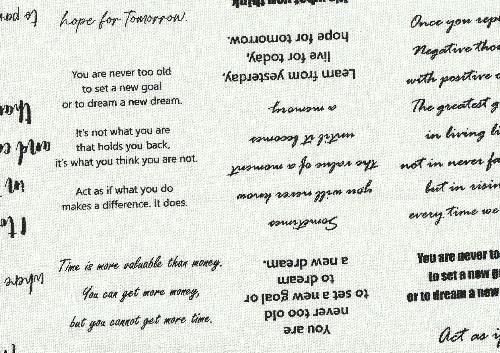 hope for Tomorrow.
You are never too old
to set a new goal
or to dream a new dream.
It's not what you are
that holds you back,
it's what you think you are not.
Act as if what you do
makes a difference. It does.
Time is more valuable than money.
You can get more money,
but you cannot get more time.
where
You are
never too old
to set a new goal or
to dream
a new dream.
Sometimes
you will never know
the value of a moment
until it becomes
a memory
Learn from yesterday,
live for today,
hope for tomorrow.
Once you
Negative
with positive
The greatest
in living
not in never
but in
every time we
You are never
to set a new
or to dream a new
Act as